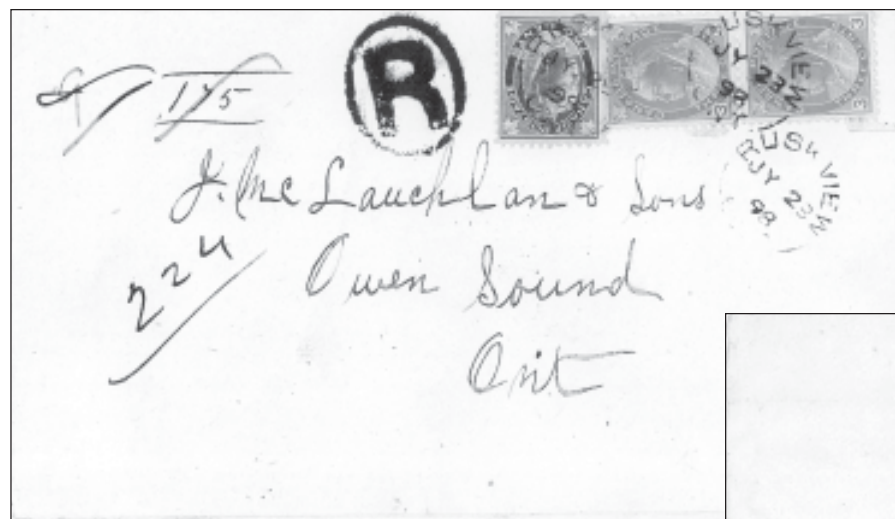 RUSKVIEW
JY 23
98
175
R
RUSKVIEW
JY 23
98
J. McLauchlan & Sons
224
Owen Sound
Ont
3
3